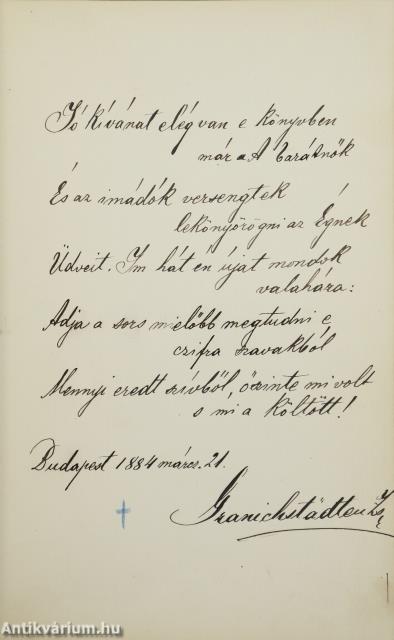 Jó kívánat elég van e könyvben
már. A barátnők
És az imádók versengtek
lekönyörögni az Égnek
Üdveit. Im hát én újat mondok
valahára:
Adja a sors mielőbb megtudni e
czifra szavakból
Mennyi eredt szívből, őszinte mi volt
s mi a költött!
Budapest 1884 márcz. 21.
Granichstädten
Antikvárium.hu